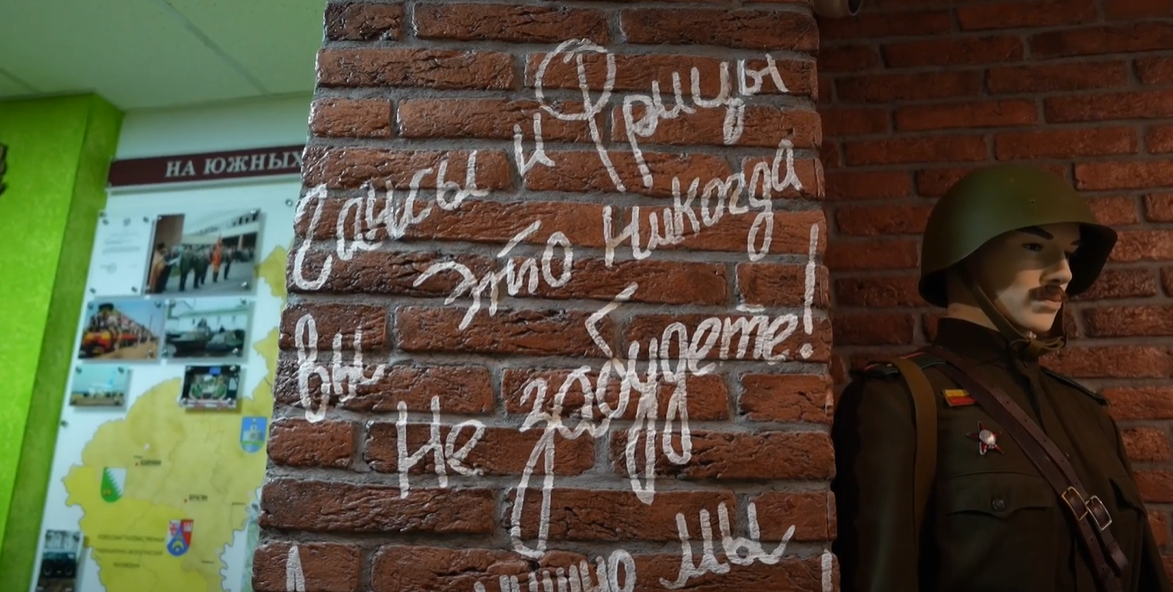 НА ЮЖНЫХ
Гансы и Фрицы
это никогда
вы
не забудете!
мы